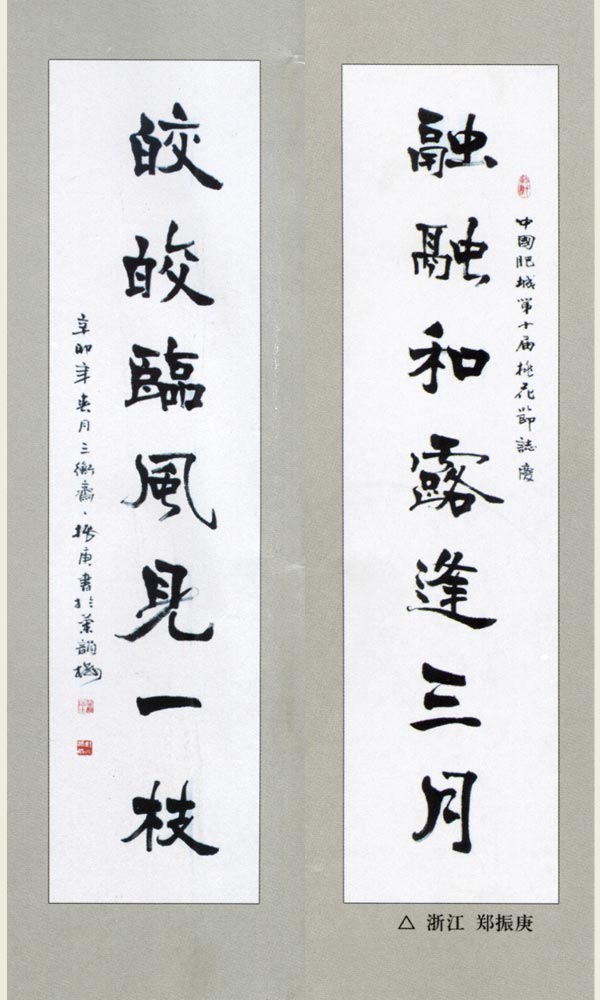 融融和露逢三月
中國肥城第十届桃花節誌慶
皎皎臨風見一枝
辛卯年春月三衡齋振庚書於
△ 浙江 郑振庚